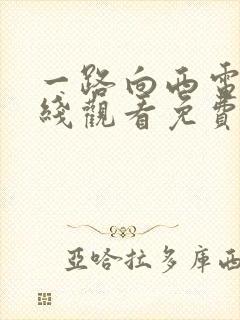 一路向西電
綫觀看免費
亞哈拉多庫西